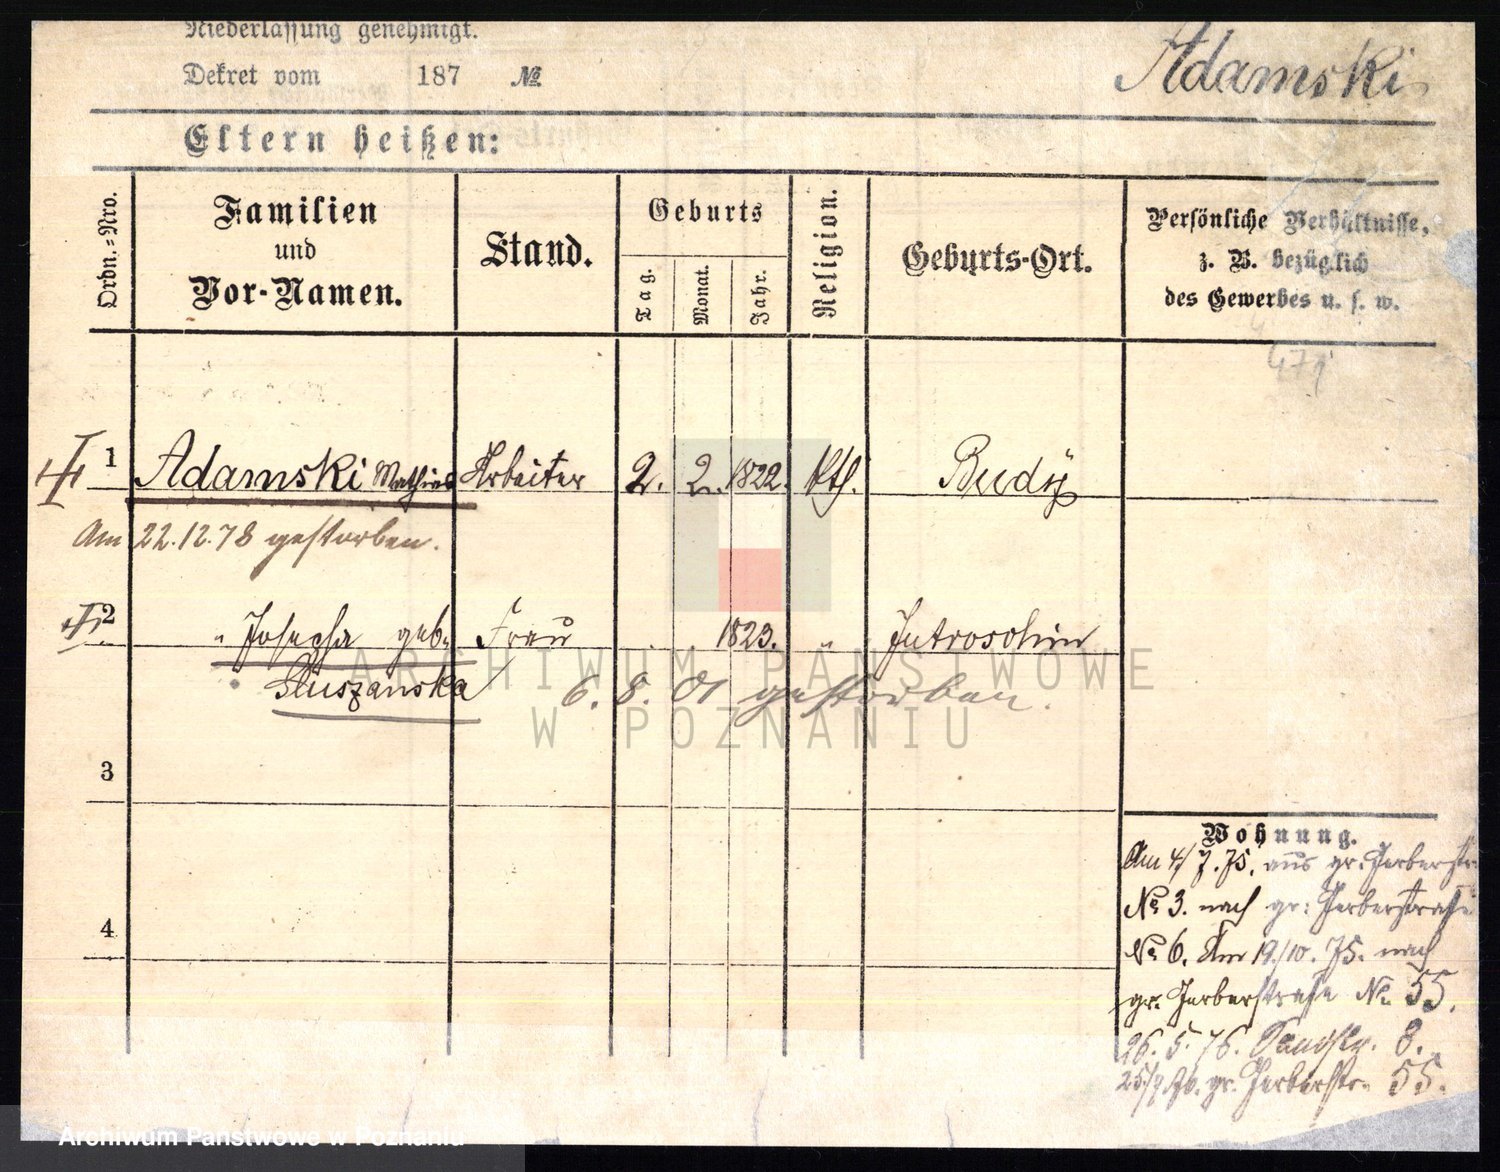 Niederlassung genehmigt.
Dekret vom 187 №
Adamski
Eltern heißen:
Ordn.-Nro.
Familien
und
Vor-Namen.
Stand.
Geburts
Tag.
Monat.
Jahr.
Religion.
Geburts-Ort.
Persönliche Verhältnisse,
z. B. bezüglich
des Gewerbes u. s. w.
1 Adamski Mathias Arbeiter 2. 2. 1822. kth. Budy
Am 22.12.78 gestorben.
2 " Josepha geb. Frau 1823. " Jutroschin
Sluszanska 6. 8. 01 gestorben.
3
4
Wohnung.
Am 4/7. 75. aus gr. Gerberstr.
№ 3. nach gr: Gerberstraße
№ 6. Am 19/10. 75. nach
gr. Gerberstraße № 55.
26. 5. 76. Sandstr. 8.
gr. Gerberstr. 55.
ARCHIWUM PAŃSTWOWE
W POZNANIU
Archiwum Państwowe w Poznaniu